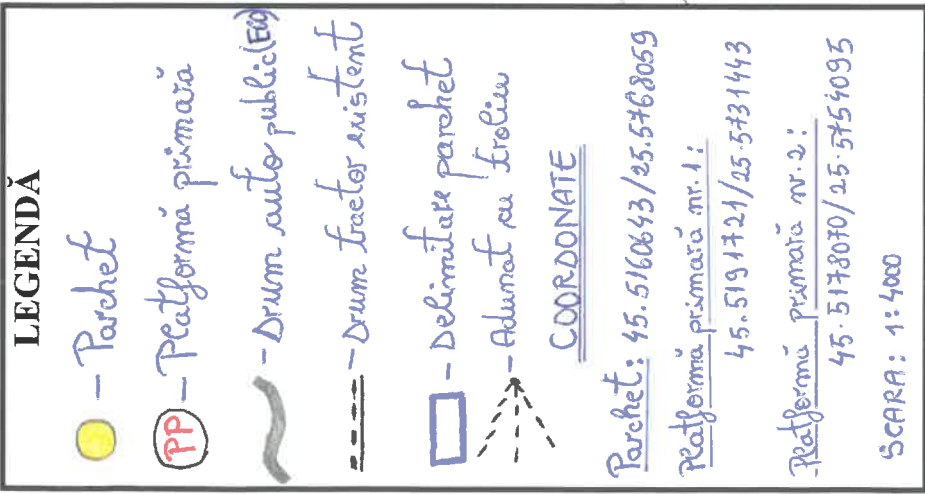 LEGENDĂ
– Parchet
PP – Platformă primară
– Drum auto public (Eco)
– Drum tractor existent
– Delimitare parchet
– Adunat cu troliu
COORDONATE
Parchet: 45.5160643/25.5768059
Platformă primară nr. 1:
45.5191721/25.5731443
Platformă primară nr. 2:
45.5178070/25.5754095
SCARA: 1:4000